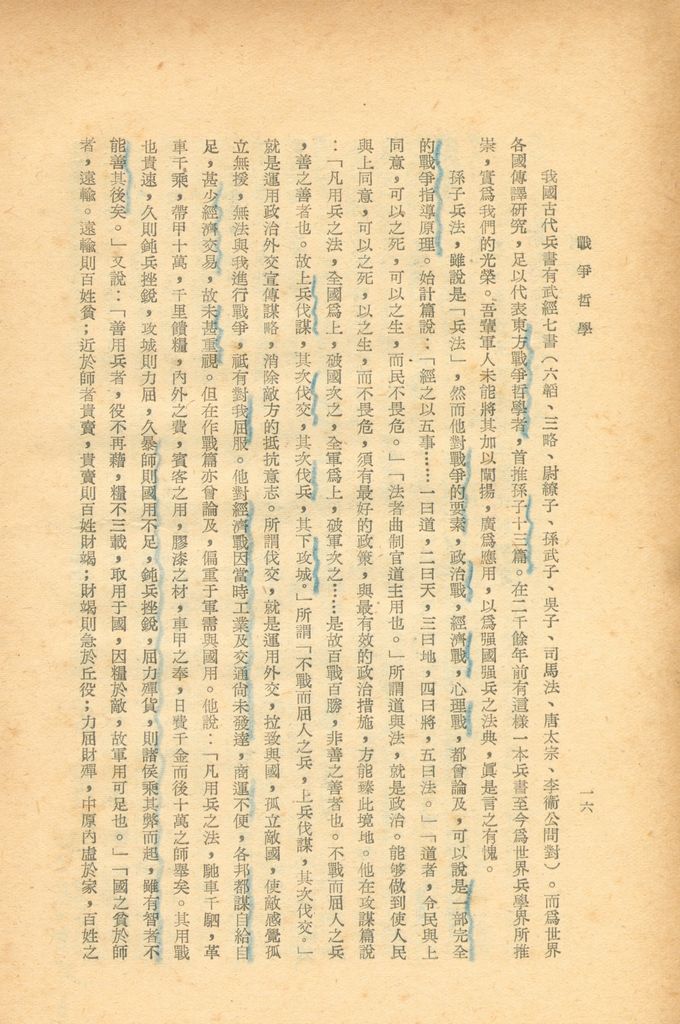 戰爭哲學
一六
我國古代兵書有武經七書（六韜、三略、尉繚子、孫武子、吳子、司馬法、唐太宗、李衞公問對）。而爲世界
各國傳譯硏究，足以代表東方戰爭哲學者，首推孫子十三篇。在二千餘年前有這樣一本兵書至今爲世界兵學界所推
崇，實爲我們的光榮。吾輩軍人未能將其加以闡揚，廣爲應用，以爲强國强兵之法典，眞是言之有愧。
孫子兵法，雖說是「兵法」，然而他對戰爭的要素，政治戰，經濟戰，心理戰，都曾論及，可以說是一部完全
的戰爭指導原理。始計篇說：「經之以五事……一曰道，二曰天，三曰地，四曰將，五曰法。」「道者，令民與上
同意，可以之死，可以之生，而民不畏危。」「法者曲制官道主用也。」所謂道與法，就是政治。能够做到使人民
與上同意，可以之死，以之生，而不畏危，須有最好的政策，與最有效的政治措施，方能臻此境地。他在攻謀篇說
：「凡用兵之法，全國爲上，破國次之，全軍爲上，破軍次之……是故百戰百勝，非善之善者也。不戰而屈人之兵
，善之善者也。故上兵伐謀，其次伐交，其次伐兵，其下攻城。」所謂「不戰而屈人之兵，上兵伐謀，其次伐交。」
就是運用政治外交宣傳謀略，消除敵方的抵抗意志。所謂伐交，就是運用外交，拉致與國，孤立敵國，使敵感覺孤
立無援，無法與我進行戰爭，祇有對我屈服。他對經濟戰因當時工業及交通尙未發達，商運不便，各邦都謀自給自
足，甚少經濟交易，故未甚重視。但在作戰篇亦曾論及，偏重于軍需與國用。他說：「凡用兵之法，馳車千駟，革
車千乘，帶甲十萬，千里饋糧，內外之費，賓客之用，膠漆之材，車甲之奉，日費千金而後十萬之師舉矣。其用戰
也貴速，久則鈍兵挫銳，攻城則力屈，久暴師則國用不足，鈍兵挫銳，屈力殫貨，則諸侯乘其弊而起，雖有智者不
能善其後矣。」又說：「善用兵者，役不再藉，糧不三載，取用于國，因糧於敵，故軍用可足也。」「國之貧於師
者，遠輸。遠輸則百姓貧；近於師者貴賣，貴賣則百姓財竭；財竭則急於丘役；力屈財殫，中原內虛於家，百姓之